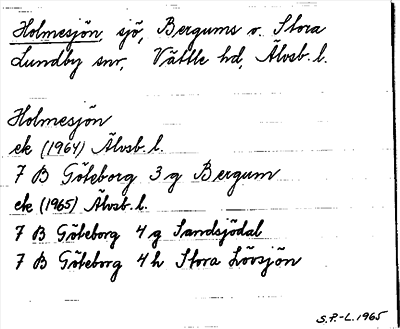 Holmesjön, sjö, Bergums o. Stora
Lundby snr, Vättle hd, Älvsb. l.
Holmesjön
ek (1964) Älvsb. l.
7 B Göteborg 3 g Bergum
ek (1965) Älvsb. l.
7 B Göteborg 4 g Sandsjödal
7 B Göteborg 4 h Stora Lövsjön
S.P.-L. 1965